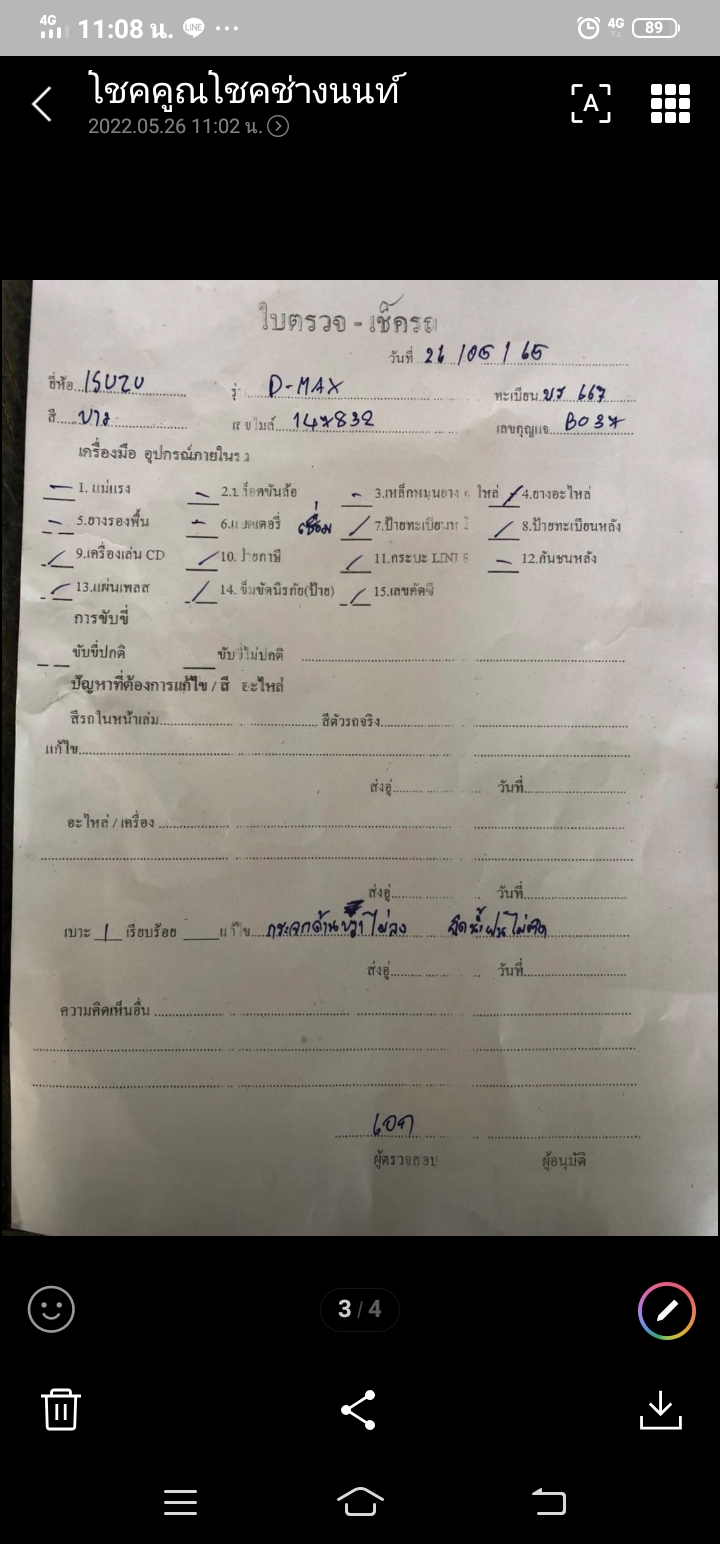 4G 11:08 น. LINE 4G 89
โชคคูณโชคช่างนนท์
2022.05.26 11:02 น.
A
ใบตรวจ - เช็ครถ
วันที่ 26 /05 / 65
ยี่ห้อ ISUZU D-MAX ทะเบียน 667
สี ไมล์ 147832 เลขกุญแจ B037
เครื่องมือ อุปกรณ์ภายใน
1. แม่แรง 2.1 ร็อคขันล้อ 3.เหล็กหมุนยาง ใหล่ 4.ยางอะไหล่
5.ยางรองพื้น 6.แบตเตอรี่ เชื่อม 7.ป้ายทะเบียนห 8.ป้ายทะเบียนหลัง
9.เครื่องเล่น CD 10. ป้ายภาษี 11.กระบะ LINE 12.กันชนหลัง
13.แผ่นเพลส 14. เข็มขัดนิรภัย(ป้าย) 15.เลขคัสซี
การขับขี่
ขับขี่ปกติ ขับขี่ไม่ปกติ
ปัญหาที่ต้องการแก้ไข / สี อะไหล่
สีรถในหน้าเล่ม สีตัวรถจริง
แก้ไข
ส่งอู่ วันที่
อะไหล่ / เครื่อง
ส่งอู่ วันที่
เบาะ / เรียบร้อย แก้ไข กระจกด้านขวาไม่ลง ฉีดน้ำฝนไม่ติด
ส่งอู่ วันที่
ความคิดเห็นอื่น
เอก
ผู้ตรวจสอบ ผู้อนุมัติ
3 / 4